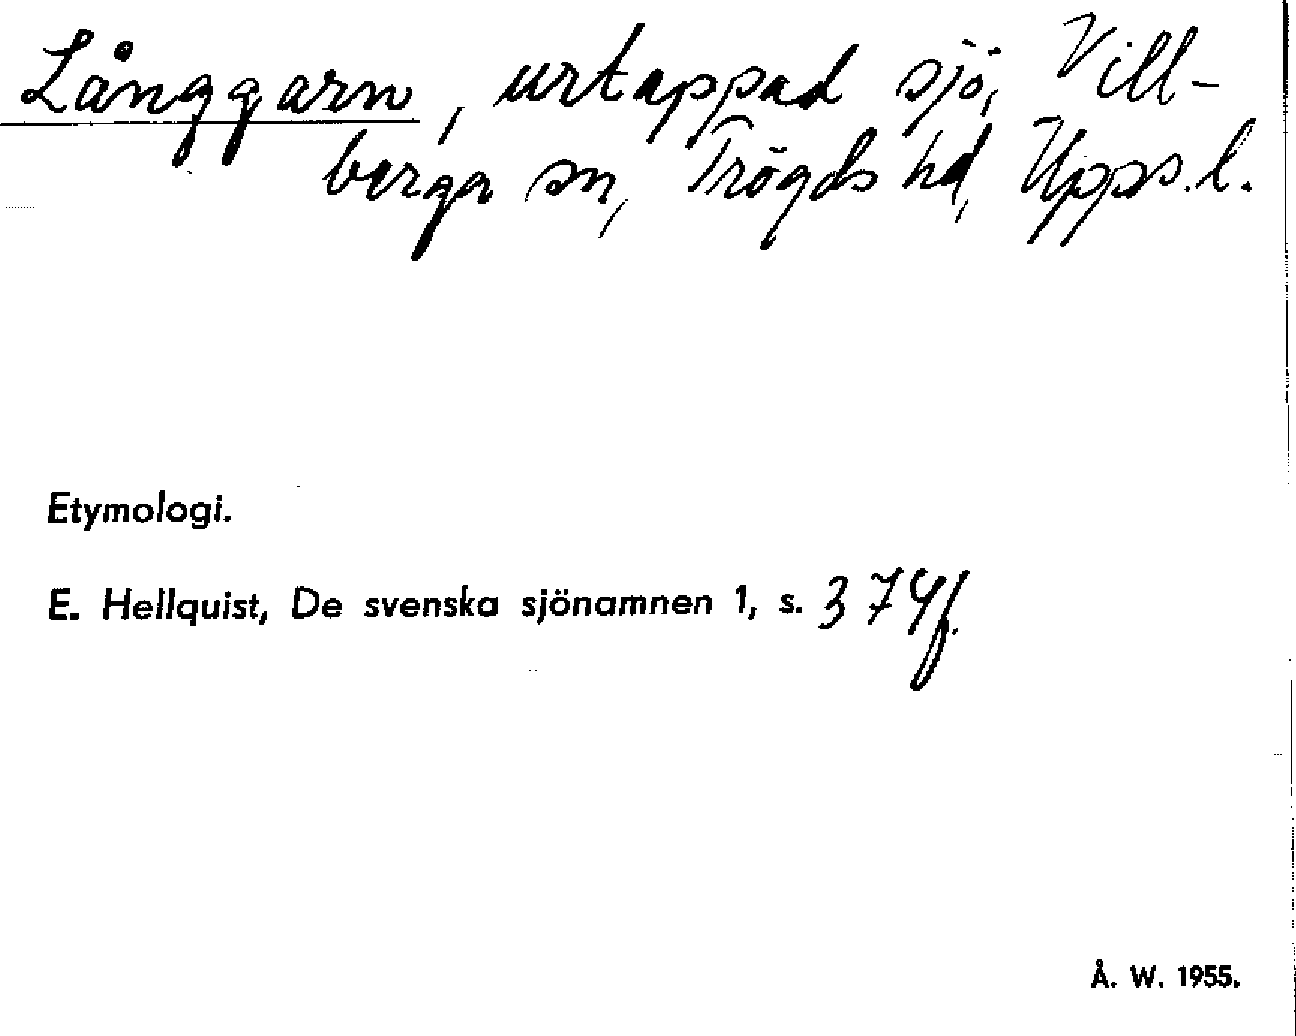 Långgarn, urtappad sjö, Vill-
berga sn, Trögds hd, Upps. l.
Etymologi.
E. Hellquist, De svenska sjönamnen 1, s. 374 f.
Å. W. 1955.